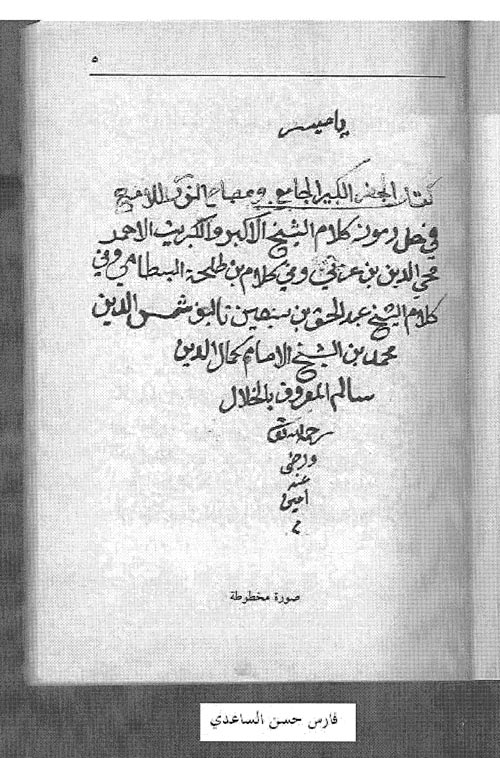 ٥
يا ميسر
كتاب الجفر الكبير الجامع ومصباح النور اللامع
في حل رموز كلام الشيخ الاكبر والكبريت الاحمر
محي الدين بن عربي وفي كلام بن طلحة البسطامي وفي
كلام الشيخ عبد الحق بن سبعين تاليف شمس الدين
محمد بن الشيخ الامام كمال الدين
سالم المعروف بالخلال
رحمه الله تعالى
ورضي
عنه
امين
م
صورة مخطوطة
فارس حسن الساعدي